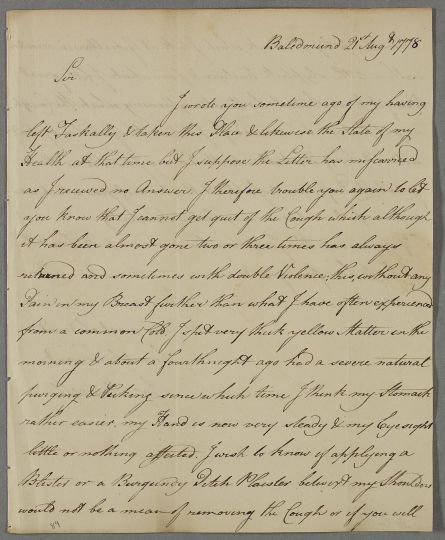 Baledmund 21st Augt 1778
Sir
I wrote you sometime ago of my having
left Faskally & taken this Place & likewise the State of my
Health at that time but I suppose the Letter has miscarried
as I received no Answer. I therefore trouble you again to let
you know that I cannot get quit of the Cough which although
it has been almost gone two or three times has always
returned and sometimes with double Violence; this, without any
Pain in my Breast further than what I have often experienced
from a common Cold, I spit very thick yellow Matter in the
morning & about a fourthnight ago had a severe natural
purging & Puking since which time I think my Stomach
rather easier, my Hand is now very steady & my Eyesight
little or nothing affected. I wish to know if applying a
Blister or a Burgundy Pitch Plaister betwixt my Shoulders
would not be a mean of removing the Cough or if you will
84